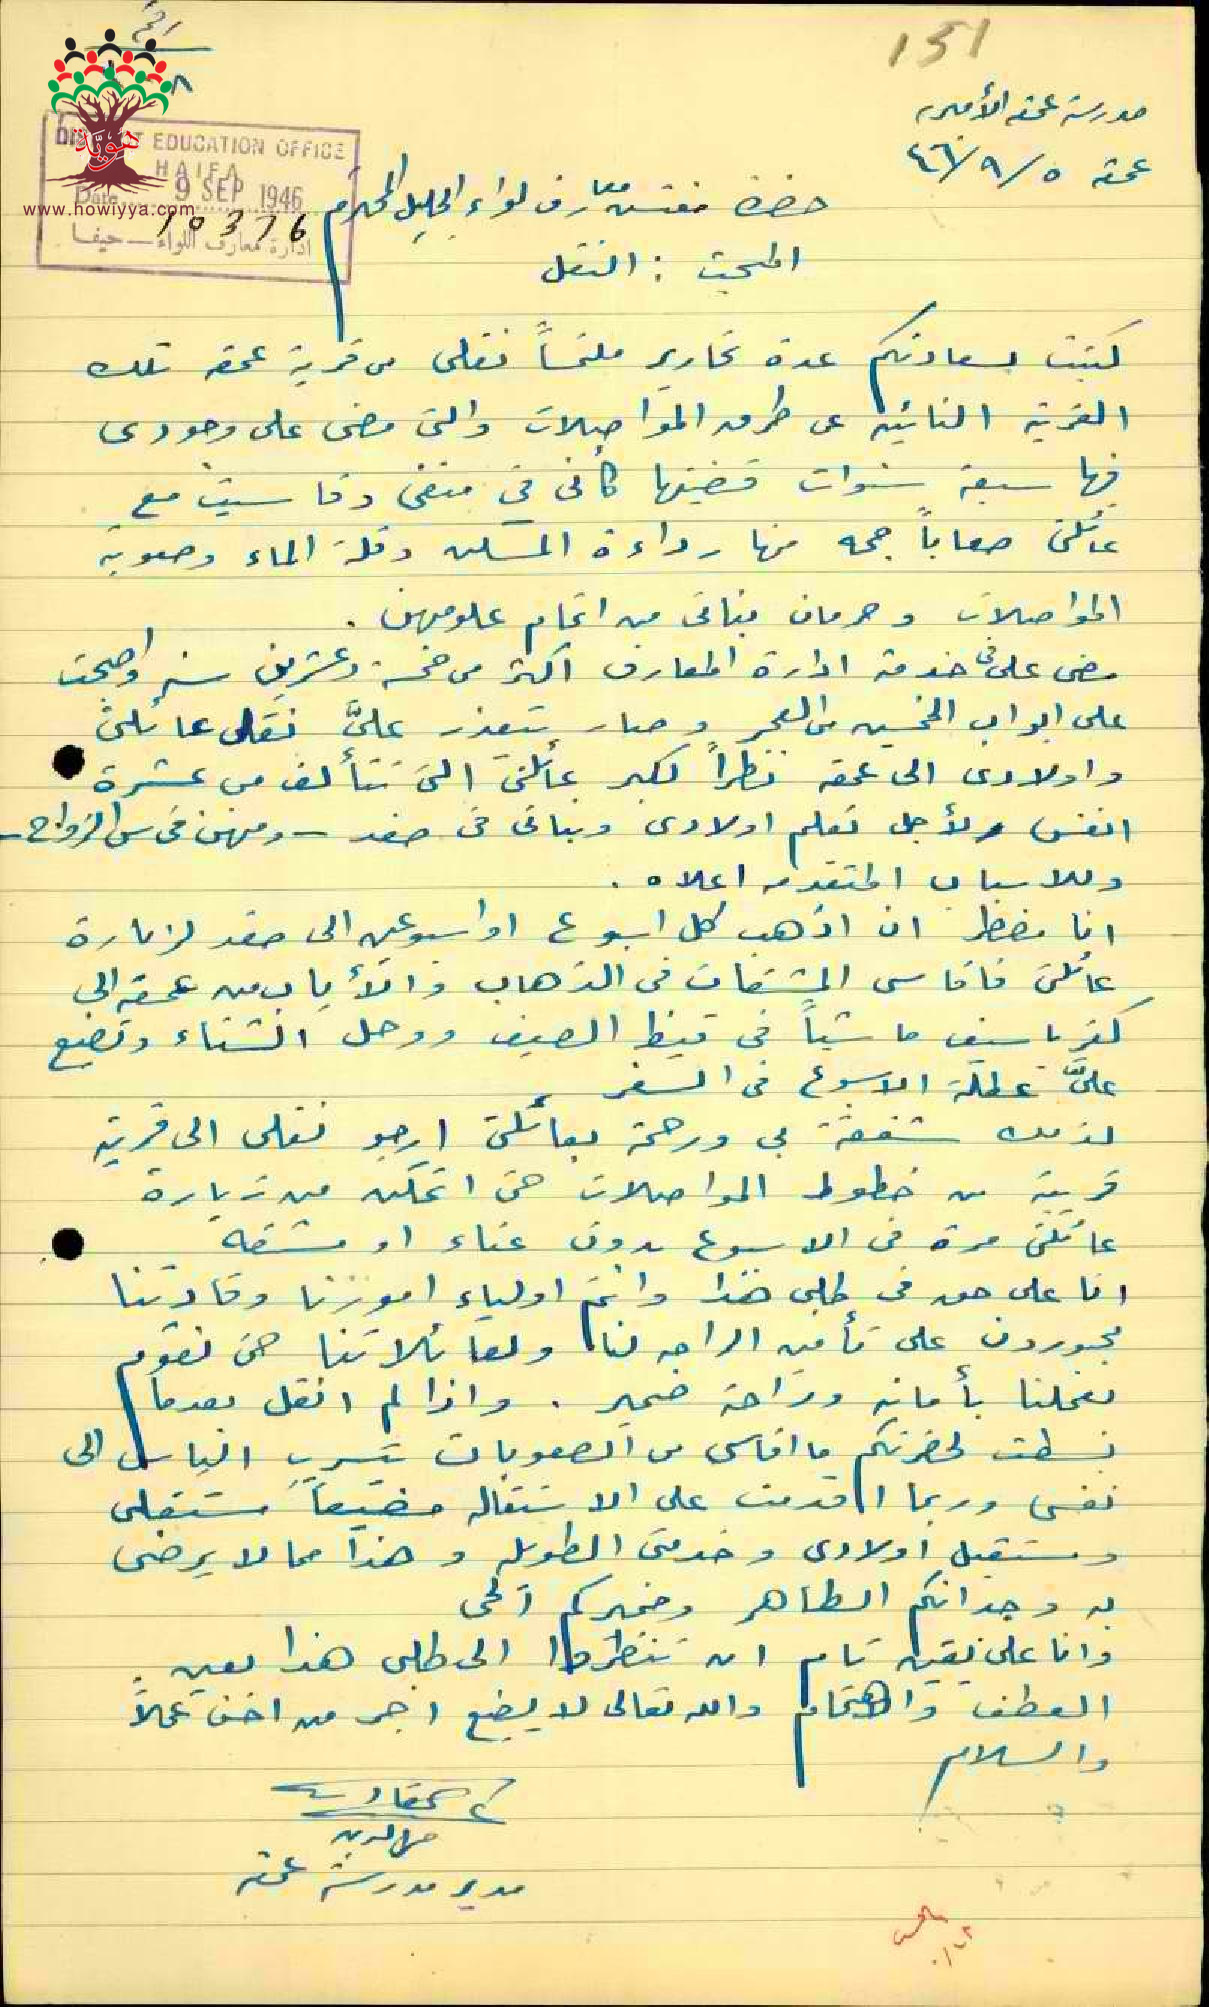 151
مدرسة عمقه الأميريه
عمقه ٥/٩/٤٦
DISTRICT EDUCATION OFFICE
HAIFA
Date 9 SEP 1946
10376
ادارة معارف اللواء - حيفا
هوية
www.howiyya.com
حضرة مفتش معارف لواء الجليل المحترم
المبحث : النقل
كتبت لسعادتكم عدة تحارير ملتمساً نقلى من قرية عمقه تلك
القرية النائيه عن طرق المواصلات والتى مضى على وجودى
فيها سبعة سنوات قضيتها كأنى فى منفى وقاسيت مع
عائلتى صعاباً جمه منها رداءة المسكن وقلة الماء وصعوبة
المواصلات وحرمان بناتى من اتمام علومهن .
مضى على فى خدمة ادارة المعارف اكثر من خمسة وعشرين سنه واصبحت
على ابواب الخمسين من العمر وصار يتعذر علىَّ نقل عائلتى
واولادى الى عمقه نظراً لكبر عائلتى التى تتألف من عشرة
انفس ولأجل تعلم اولادى وبناتى فى صفد - ومنهن فى سن الزواج -
وللاسباب المتقدمه اعلاه .
انا مضطر ان اذهب كل اسبوع او اسبوعين الى صفد لزيارة
عائلتى فاقاسى المشقات فى الذهاب والأياب من عمقه الى
كفر ياسيف ماشياً فى قيظ الصيف ووحل الشتاء وتضيع
علىَّ عطلة الاسبوع فى السفر
لذلك شفقة بى ورحمة بعائلتى ارجو نقلى الى قرية
قريبة من خطوط المواصلات حتى اتمكن من زيارة
عائلتى مرة فى الاسبوع بدون عناء او مشقه
انا على حق فى طلبى هذا وانتم اولياء امورنا وقادتنا
مجبورون على تأمين الراحه لنا ولعائلاتنا حتى نقوم
بعملنا بأمانه وراحة ضمير . واذا لم انقل بعدما
بسطت لحضرتكم ما اقاسى من الصعوبات يتسرب الياس الى
نفسى وربما اقدمت على الاستقاله مضيعاً مستقبلى
ومستقبل اولادى وخدمتى الطويله وهذا مما لا يرضى
به وجدانكم الطاهر وضميركم الحى
وانا على يقين تام ان تنظروا الى طلبى هذا بعين
العطف والاهتمام والله تعالى لا يضيع اجر من احسن عملاً
والسلام
مدير مدرسة عمقه